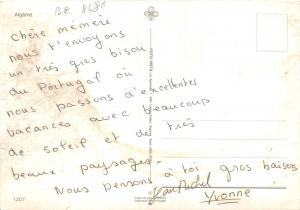 Algarve
B.R 8480
Chère mémère
nous t'envoyons
un très gros bisou
du Portugal où
nous passons d'excellentes
vacances avec beaucoup
de soleil et de très
beaux paysages.
Nous pensons à toi gros baisers
Jean Michel
Yvonne
1207